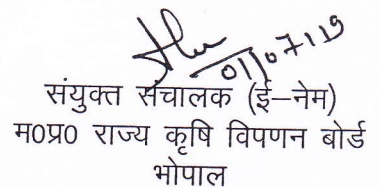 01/07/19
संयुक्त संचालक (ई–नेम)
म0प्र0 राज्य कृषि विपणन बोर्ड
भोपाल